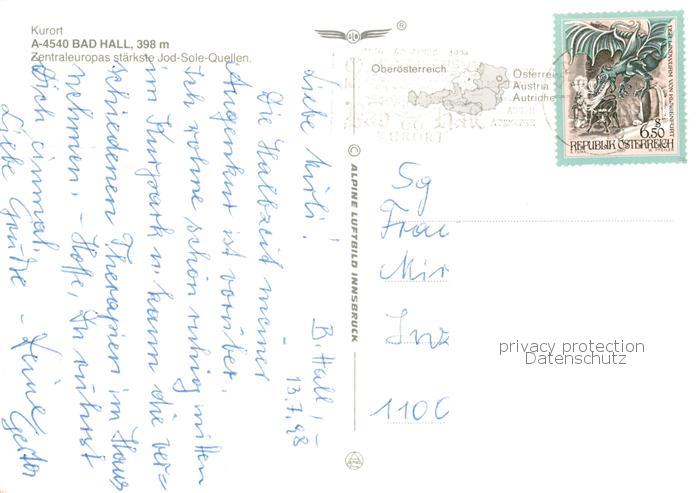 Kurort
A-4540 BAD HALL, 398 m
Zentraleuropas stärkste Jod-Sole-Quellen.
B. Hall, -
13.7.98
Liebe Mirli!
Die Halbzeit meiner
Augenkur ist vorüber.
Ich wohne schön ruhig mitten
im Kurpark u. kann die ver=
schiedenen Therapien im Haus
nehmen. - Hoffe, Du rührst
Dich einmal.
Liebe Grüße - Deine
© ALPINE LUFTBILD INNSBRUCK
®
Oberösterreich
Österrei
Austria
Autriche
KURORT
6.50
REPUBLIK ÖSTERREICH
Sg
Frau
Mir
1100
privacy protection
Datenschutz